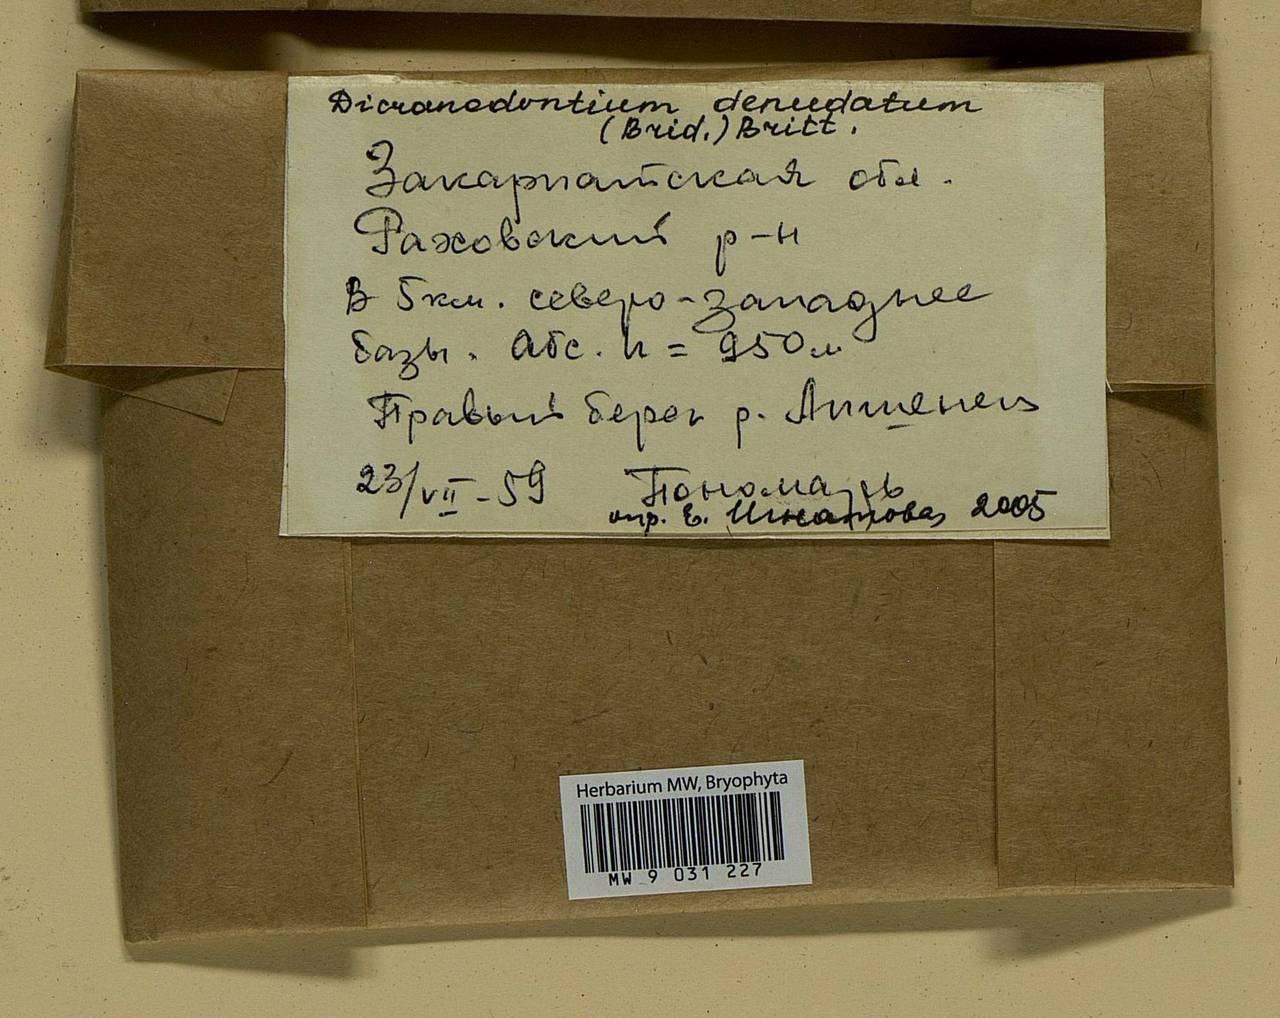 Dicranodontium denudatum
(Brid.) Britt.
Закарпатская обл.
Раховский р-н
В 5 км. северо-западнее
базы. Абс. h = 950 м
Правый берег р. Апшенец
23/VII-59 Пономарь
опр. Е. Игнатова 2005
Herbarium MW, Bryophyta
MW 9 031 227